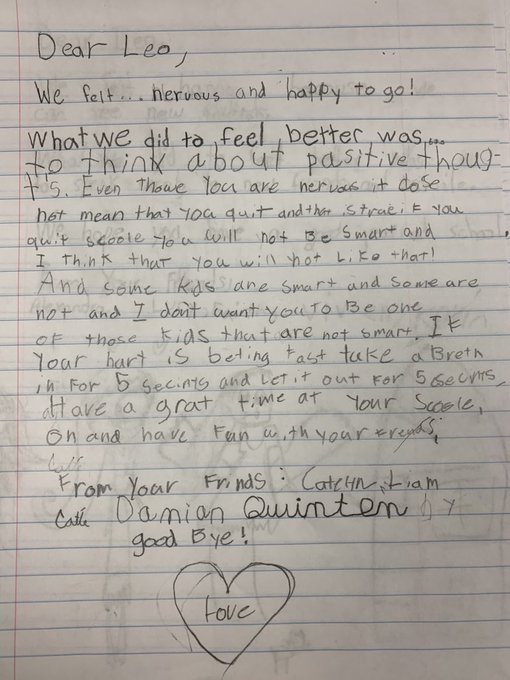 Dear Leo,
We felt... nervous and happy to go!
What we did to feel better was...
to think about pasitive thoug-
ts. Even thowe you are nervous it dose
not mean that you quit and that strae if you
quit scoole you will not Be smart and
I think that you will not Like that!
And some kids are smart and some are
not and I don't want you to Be one
of those kids that are not smart. If
your hart is beting fast take a Breth
in for 5 secints and let it out for 5 secints,
Have a grat time at your Scoole,
on and have fun with your freyds,
From your Frinds: Catelyn, Liam
Catk Damian Quinten by
good Bye!
Love